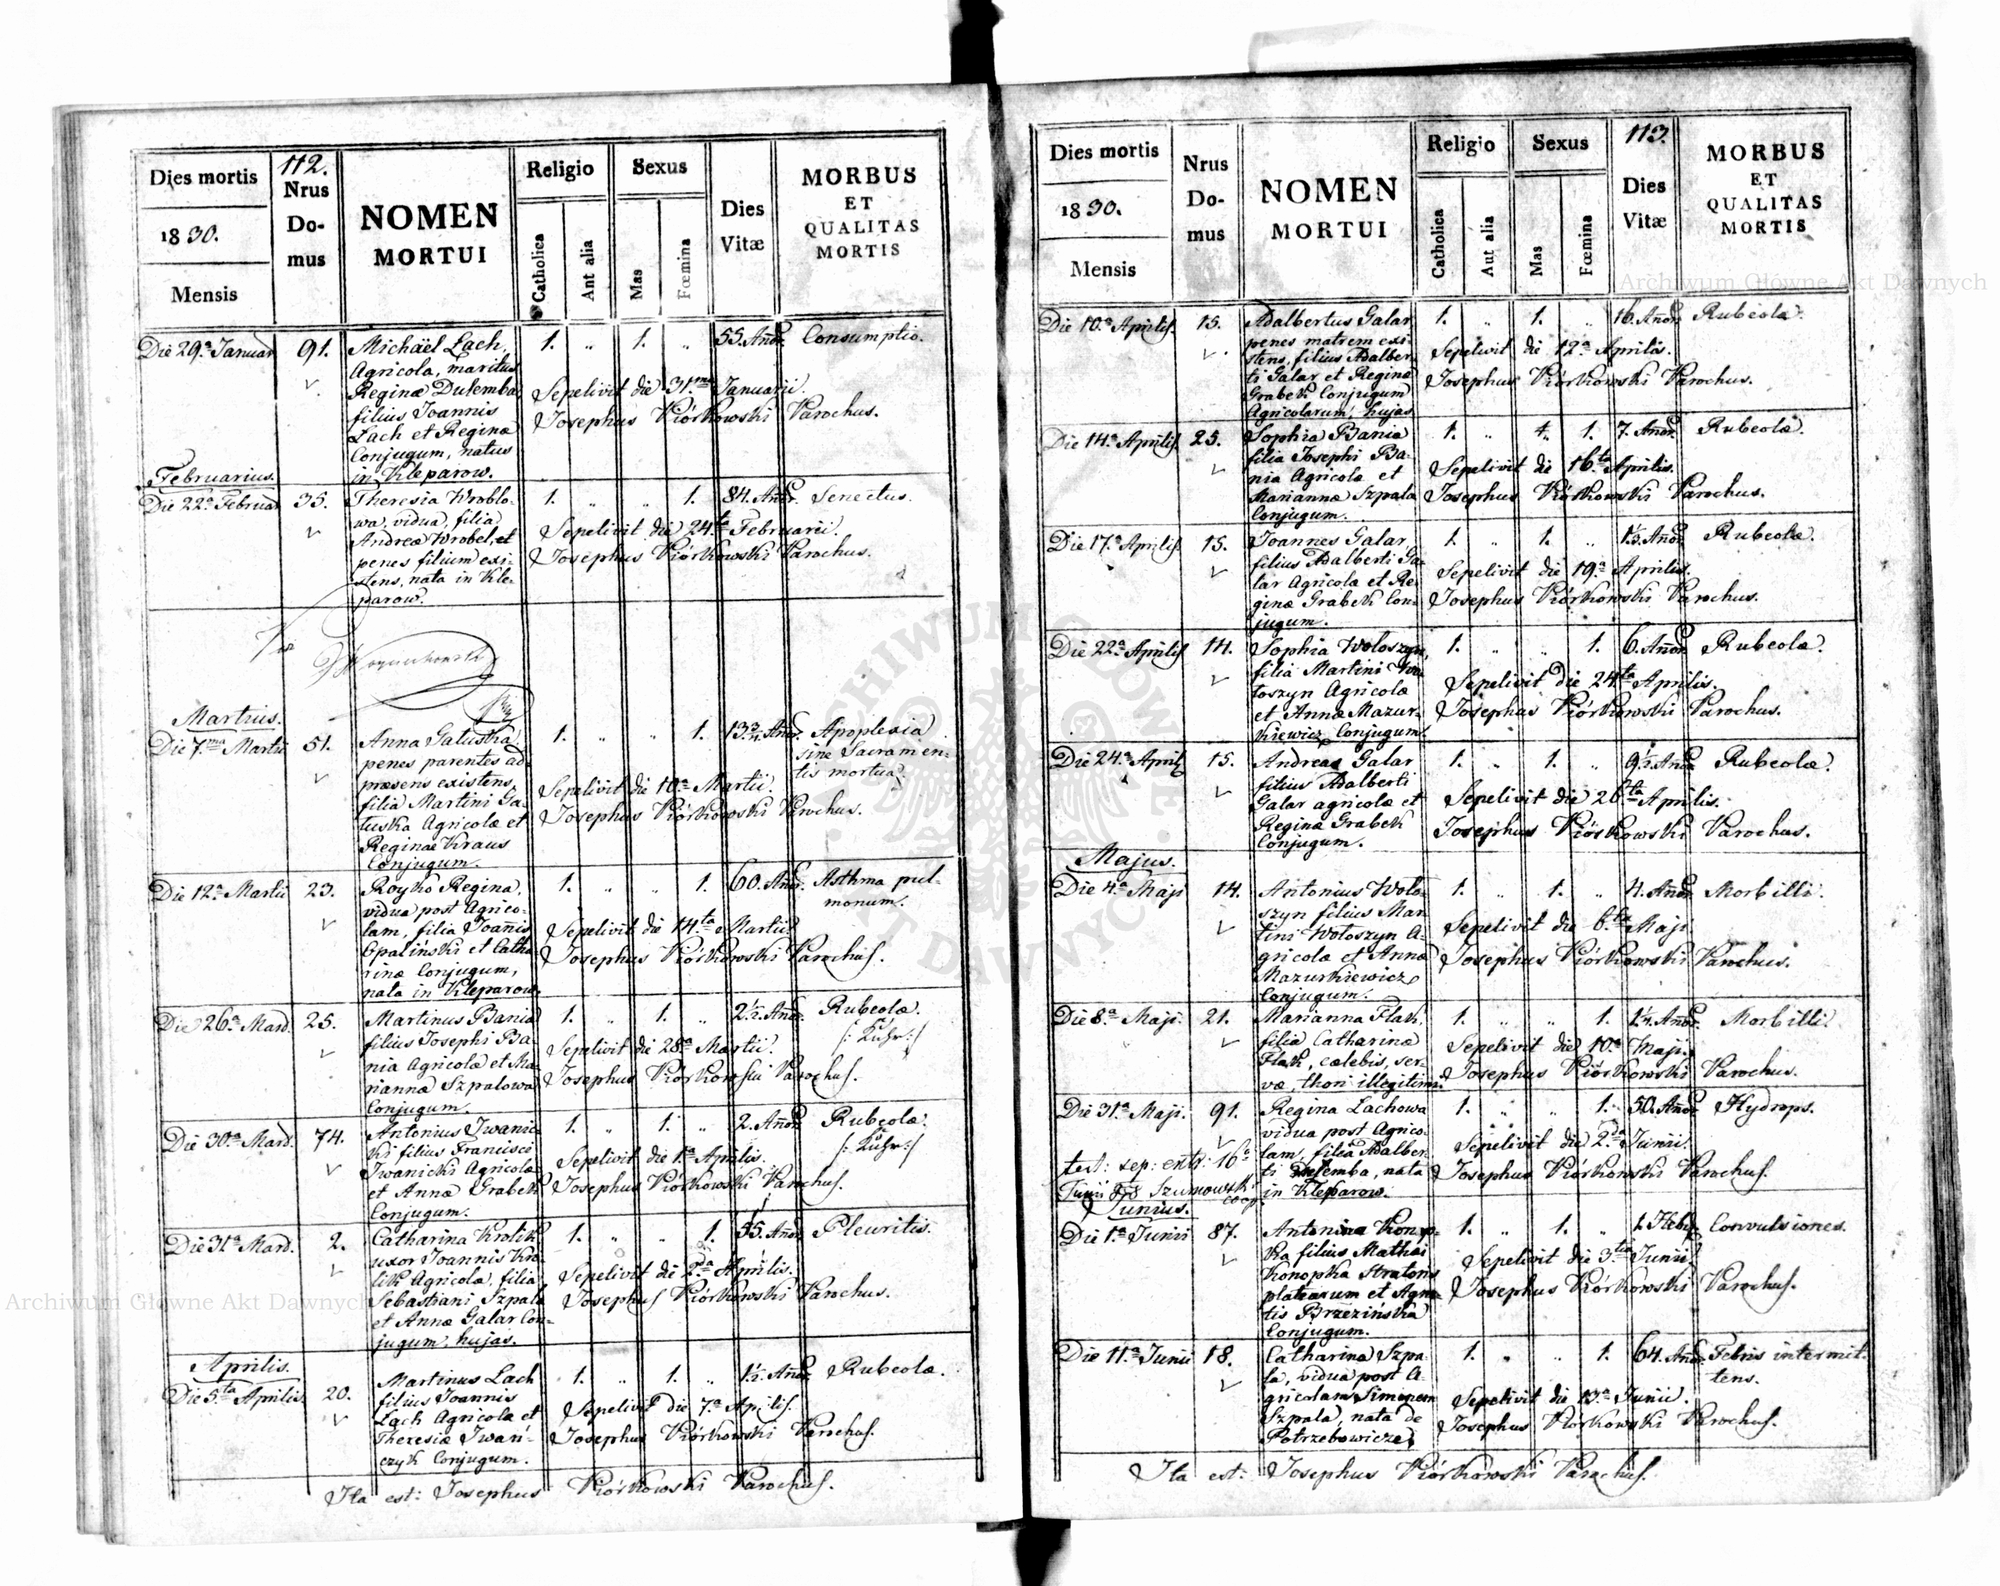 112.
Dies mortis
1830.
Mensis
Nrus
Do-
mus
NOMEN
MORTUI
Religio
Catholica
Aut alia
Sexus
Mas
Fœmina
Dies
Vitæ
MORBUS
ET
QUALITAS
MORTIS
Die 29.a Januar 91.
Michaël Lach,
Agricola, maritus
Reginæ Dulemba,
filius Joannis
Lach et Reginæ
Conjugum, natus
in Kleparow.
1. " 1. " 55. Anor. Consumptio.
Sepelivit die 31ma Januarii.
Josephus Piórkowski Parochus.
Februarius.
Die 22.a Februar 35.
Theresia Wroblo-
wa, vidua, filia
Andreæ Wrobel, et
penes filium exi-
stens, nata in Kle-
parow.
1. " " 1. 84. Anor. Senectus.
Sepelivit die 24ta Februarii.
Josephus Piórkowski Parochus.
Martius.
Die 7.ma Martii 51.
Anna Galuska
penes parentes ad
præsens existens,
filia Martini Ga-
luska Agricolæ et
Reginæ Kraus
Conjugum.
1. " " 1. 13 3/4. Anor. Apoplexia
sine Sacramen-
tis mortua.
Sepelivit die 10.a Martii.
Josephus Piórkowski Parochus.
Die 12.a Martii 23.
Royko Regina,
vidua post Agrico-
lam, filia Joannis
Opaliński et Catha-
rinæ Conjugum,
nata in Kleparow.
1. " " 1. 60. Anor. Asthma pul-
monum.
Sepelivit die 14ta Martii
Josephus Piórkowski Parochus.
Die 26.a Mart. 25.
Martinus Bania
filius Josephi Ba-
nia Agricolæ et Ma-
riannæ Szpalowa
Conjugum.
1. " 1. " 2 1/2. Anor. Rubeolæ.
/: Kuhr :/
Sepelivit die 28.a Martii.
Josephus Piórkowski Parochus.
Die 30.a Mart. 74.
Antonius Iwanic-
ki filius Francisci
Iwanicki Agricolæ
et Annæ Grabek
Conjugum.
1. " 1. " 2. Anor. Rubeolæ.
/: Kuhr :/
Sepelivit die 1.a Aprilis.
Josephus Piórkowski Parochus.
Die 31.a Mart. 2.
Catharina Krolik
uxor Joannis Kro-
lik Agricolæ, filia
Sebastiani Szpala
et Annæ Galar Con-
jugum, hujas.
1. " " 1. 55. Anor. Pleuritis.
Sepelivit die 2da Aprilis.
Josephus Piórkowski Parochus.
Aprilis.
Die 5ta Aprilis. 20.
Martinus Lach
filius Joannis
Lach Agricolæ et
Theresiæ Iwań-
czyk Conjugum.
1. " 1. " 1 1/2. Anor. Rubeolæ.
Sepelivit die 7.a Aprilis.
Josephus Piórkowski Parochus.
Ita est: Josephus Piórkowski Parochus.
113.
Dies mortis
1830.
Mensis
Nrus
Do-
mus
NOMEN
MORTUI
Religio
Catholica
Aut alia
Sexus
Mas
Fœmina
Dies
Vitæ
MORBUS
ET
QUALITAS
MORTIS
Die 10.a Aprilis. 15.
Adalbertus Galar,
penes matrem exi-
stens, filius Adalber-
ti Galar et Reginæ
Grabek Conjugum
Agricolarum, hujas
1. " 1. " 16. Anor. Rubeolæ.
Sepelivit die 12.a Aprilis.
Josephus Piórkowski Parochus.
Die 14.a Aprilis. 25.
Sophia Bania
filia Josephi Ba-
nia Agricolæ et
Mariannæ Szpala
Conjugum.
1. " 1. 7. Anor. Rubeolæ.
Sepelivit die 16.ta Aprilis.
Josephus Piórkowski Parochus.
Die 17.a Aprilis. 15.
Joannes Galar,
filius Adalberti Ga-
lar Agricolæ et Re-
ginæ Grabek Con-
jugum.
1. " 1. " 13. Anor. Rubeolæ.
Sepelivit die 19.a Aprilis.
Josephus Piórkowski Parochus.
Die 22.a Aprilis 14.
Sophia Wołoszyn,
filia Martini Wo-
łoszyn Agricolæ
et Annæ Mazur-
kiewicz Conjugum.
1. " " 1. 6. Anor. Rubeolæ.
Sepelivit die 24ta Aprilis.
Josephus Piórkowski Parochus.
Die 24.a April. 15.
Andreas Galar
filius Adalberti
Galar agricolæ et
Reginæ Grabek
Conjugum.
1. " 1. " 9 1/2. Anor. Rubeolæ.
Sepelivit die 26ta Aprilis.
Josephus Piórkowski Parochus.
Majus.
Die 4.a Maji 14.
Antonius Woło-
szyn filius Mar-
tini Wołoszyn A-
gricolæ et Annæ
Mazurkiewicz
Conjugum.
1. " 1. " 4. Anor. Morbilli.
Sepelivit die 6.ta Maji.
Josephus Piórkowski Parochus.
Die 8.a Maji. 21.
Marianna Flak,
filia Catharinæ
Flak, cælebis, ser-
væ, thori illegitimi.
1. " " 1. 1 1/4. Anor. Morbilli.
Sepelivit die 10.a Maji.
Josephus Piórkowski Parochus.
Die 31.a Maji. 91.
Regina Lachowa
vidua post Agrico-
lam, filia Adalber-
ti Dulemba, nata
in Kleparow.
1. " " 1. 50. Anor. Hydrops.
Sepelivit die 2da Junii.
Josephus Piórkowski Parochus.
test: sep: extr: 16a
Junii Szumowski
coop
Junius.
Die 1.a Junii 87.
Antonius Konop-
ka filius Mathei
Konopka Stratoris
platearum et Agne-
tis Brzezińska
Conjugum.
1. " 1. " 1. Hebd. Convulsiones.
Sepelivit die 3tia Junii
Josephus Piórkowski Parochus.
Die 11.a Junii 18.
Catharina Szpa-
la, vidua post A-
gricolam Simonem
Szpala, nata de
Potrzebowicze.
1. " " 1. 64. Anor. Febris intermit-
tens.
Sepelivit die 13.a Junii.
Josephus Piórkowski Parochus.
Ita est: Josephus Piórkowski Parochus.
Archiwum Główne Akt Dawnych
Archiwum Główne Akt Dawnych
ARCHIWUM GŁÓWNE
AKT DAWNYCH